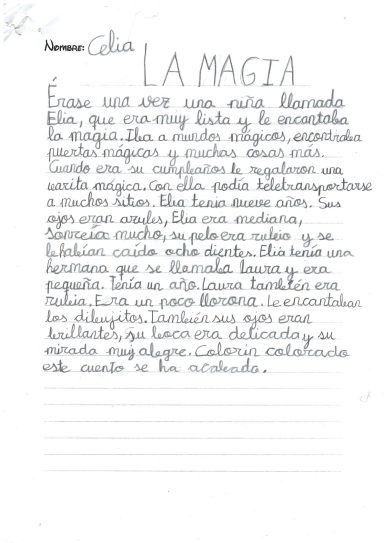 NOMBRE: Celia
LA MAGIA
Érase una vez una niña llamada
Elia, que era muy lista y le encantaba
la magia. Iba a mundos mágicos, encontraba
puertas mágicas y muchas cosas más.
Cuando era su cumpleaños le regalaron una
varita mágica. Con ella podía teletransportarse
a muchos sitios. Elia tenia nueve años. Sus
ojos eran azules, Elia era mediana,
sonreía mucho, su pelo era rubio y se
le habían caído ocho dientes. Elia tenía una
hermana que se llamaba laura y era
pequeña. Tenía un año. Laura también era
rubia. Era un poco llorona. Le encantaban
los dibujitos. También sus ojos eran
brillantes, su boca era delicada y su
mirada muy alegre. Colorin colorado
este cuento se ha acabado.